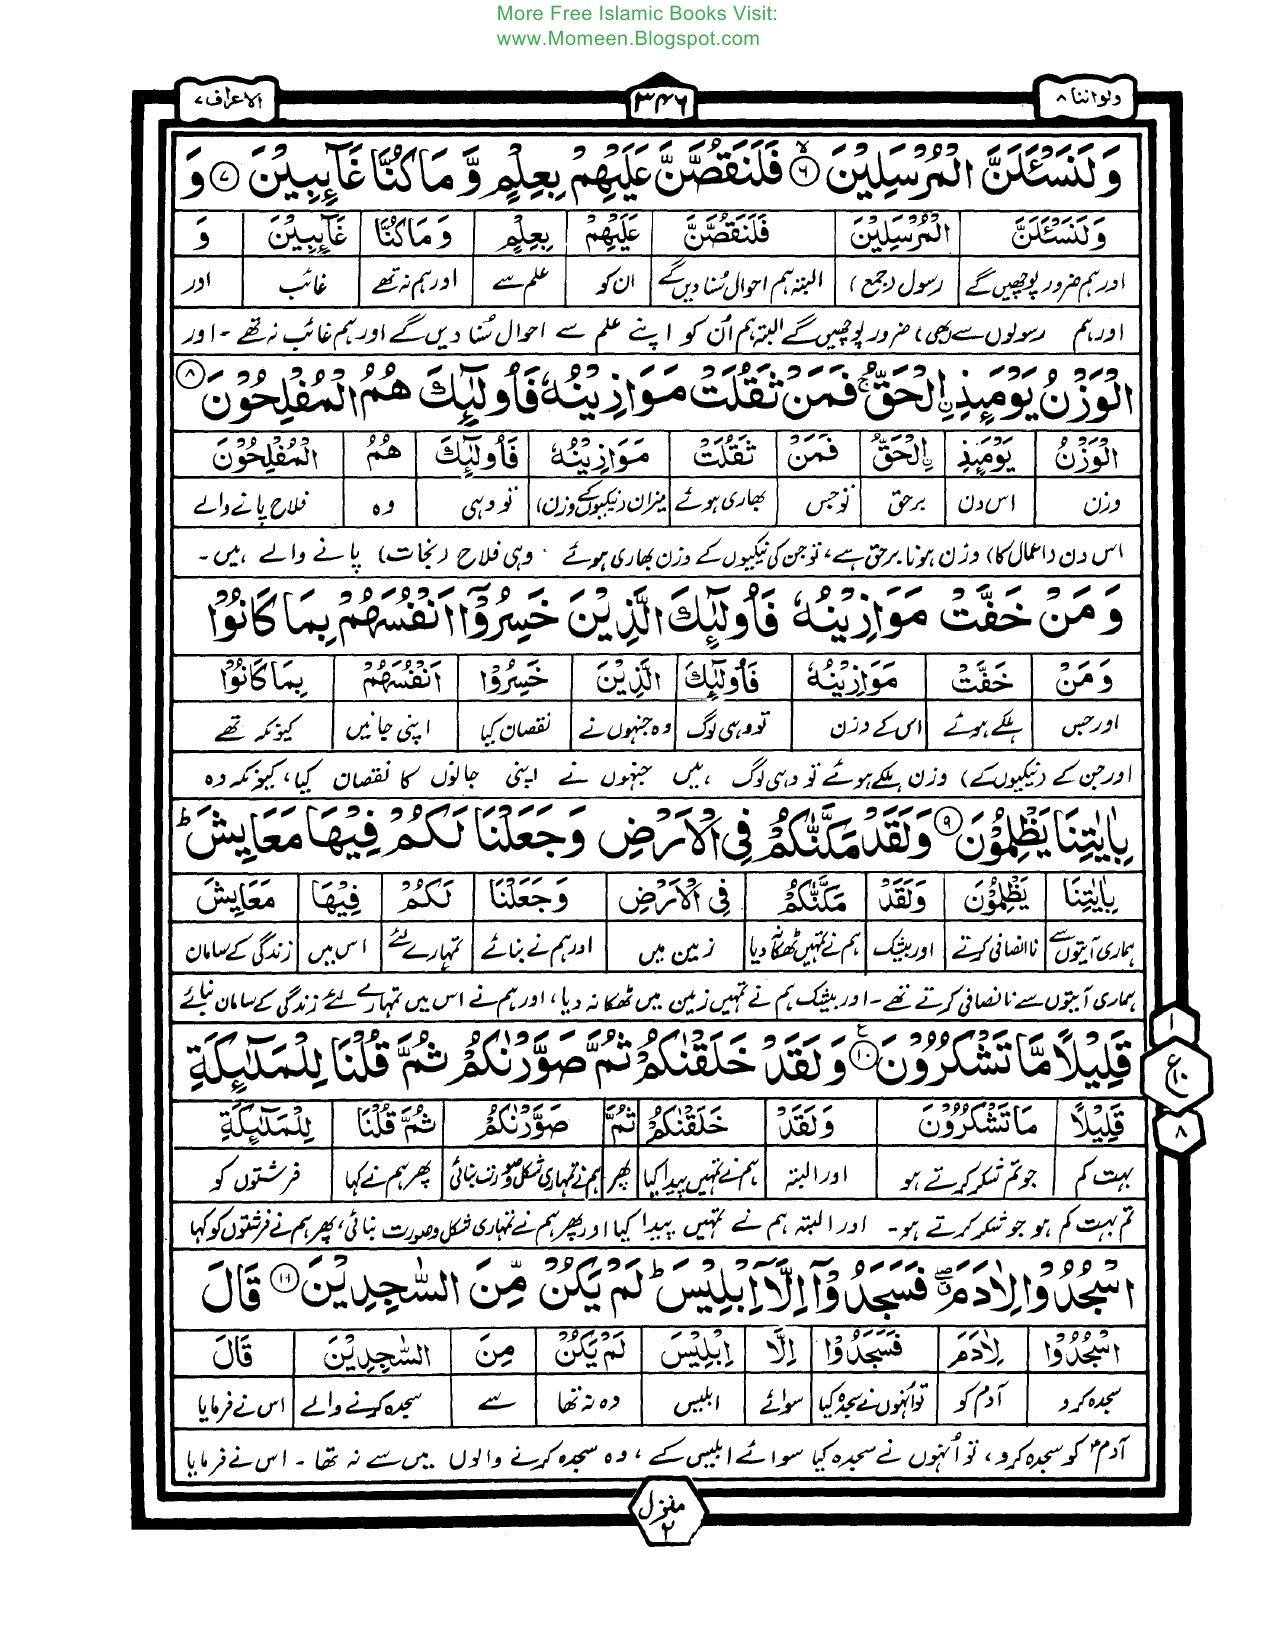 More Free Islamic Books Visit:
www.Momeen.Blogspot.com
ولواننا ۸ ۳۴۶ الاعراف ۷
وَلَنَسْـَٔلَنَّ الْمُرْسَلِيْنَ ۙ۶ فَلَنَقُصَّنَّ عَلَيْهِمْ بِعِلْمٍ وَّمَا كُنَّا غَآئِبِيْنَ ۷ وَ
وَلَنَسْـَٔلَنَّ الْمُرْسَلِيْنَ فَلَنَقُصَّنَّ عَلَيْهِمْ بِعِلْمٍ وَمَا كُنَّا غَآئِبِيْنَ وَ
اور ہم ضرور پوچھیں گے رسول (جمع) البتہ ہم احوال سُنا دیں گے ان کو علم سے اور ہم نہ تھے غائب اور
اور ہم رسولوں سے (بھی) ضرور پوچھیں گے البتہ ہم اُن کو اپنے علم سے احوال سُنا دیں گے اور ہم غائب نہ تھے ۔ اور
الْوَزْنُ يَوْمَئِذِ ِۨالْحَقُّ ۚ فَمَنْ ثَقُلَتْ مَوَازِيْنُهٗ فَاُولٰٓئِكَ هُمُ الْمُفْلِحُوْنَ ۸
الْوَزْنُ يَوْمَئِذِ ِۨالْحَقُّ فَمَنْ ثَقُلَتْ مَوَازِيْنُهٗ فَاُولٰٓئِكَ هُمُ الْمُفْلِحُوْنَ
وزن اس دن برحق تو جس بھاری ہوئے میزان (نیکیوں کے وزن) تو وہی وہ فلاح پانے والے
اس دن (اعمال کا) وزن ہونا برحق ہے، تو جن کی نیکیوں کے وزن بھاری ہوئے وہی فلاح (نجات) پانے والے ہیں۔
وَمَنْ خَفَّتْ مَوَازِيْنُهٗ فَاُولٰٓئِكَ الَّذِيْنَ خَسِرُوْٓا اَنْفُسَهُمْ بِمَا كَانُوْا
وَمَنْ خَفَّتْ مَوَازِيْنُهٗ فَاُولٰٓئِكَ الَّذِيْنَ خَسِرُوْٓا اَنْفُسَهُمْ بِمَا كَانُوْا
اور جس ہلکے ہوئے اس کے وزن تو وہی لوگ وہ جنہوں نے نقصان کیا اپنی جانیں کیونکہ تھے
اور جن کے (نیکیوں کے) وزن ہلکے ہوئے تو وہی لوگ ہیں جنہوں نے اپنی جانوں کا نقصان کیا، کیونکہ وہ
بِاٰيٰتِنَا يَظْلِمُوْنَ ۹ وَلَقَدْ مَكَّنّٰكُمْ فِى الْاَرْضِ وَجَعَلْنَا لَكُمْ فِيْهَا مَعَايِشَ ؕ
بِاٰيٰتِنَا يَظْلِمُوْنَ وَلَقَدْ مَكَّنّٰكُمْ فِى الْاَرْضِ وَجَعَلْنَا لَكُمْ فِيْهَا مَعَايِشَ
ہماری آیتوں سے نا انصافی کرتے اور بیشک ہم نے تمہیں ٹھکانہ دیا زمین میں اور ہم نے بنائے تمہارے لئے اس میں زندگی کے سامان
ہماری آیتوں سے نا انصافی کرتے تھے۔ اور بیشک ہم نے تمہیں زمین میں ٹھکانہ دیا، اور ہم نے اس میں تمہارے لئے زندگی کے سامان بنائے
قَلِيْلًا مَّا تَشْكُرُوْنَ ۧ۱۰ وَلَقَدْ خَلَقْنٰكُمْ ثُمَّ صَوَّرْنٰكُمْ ثُمَّ قُلْنَا لِلْمَلٰٓئِكَةِ
۱
ع
۱۰
۸
قَلِيْلًا مَا تَشْكُرُوْنَ وَلَقَدْ خَلَقْنٰكُمْ ثُمَّ صَوَّرْنٰكُمْ ثُمَّ قُلْنَا لِلْمَلٰٓئِكَةِ
بہت کم جو تم شکر کرتے ہو اور البتہ ہم نے تمہیں پیدا کیا پھر ہم نے تمہاری شکل و صورت بنائی پھر ہم نے کہا فرشتوں کو
تم بہت کم ہو جو شکر کرتے ہو۔ اور البتہ ہم نے تمہیں پیدا کیا اور پھر ہم نے تمہاری شکل و صورت بنائی، پھر ہم نے فرشتوں کو کہا
اسْجُدُوْا لِاٰدَمَ ۖ فَسَجَدُوْٓا اِلَّآ اِبْلِيْسَ ؕ لَمْ يَكُنْ مِّنَ السّٰجِدِيْنَ ۱۱ قَالَ
اسْجُدُوْا لِاٰدَمَ فَسَجَدُوْٓا اِلَّا اِبْلِيْسَ لَمْ يَكُنْ مِنَ السّٰجِدِيْنَ قَالَ
سجدہ کرو آدم کو تو انہوں نے سجدہ کیا سوائے ابلیس وہ نہ تھا سے سجدہ کرنے والے اس نے فرمایا
آدم کو سجدہ کرو، تو اُنہوں نے سجدہ کیا سوائے ابلیس کے، وہ سجدہ کرنے والوں میں سے نہ تھا۔ اس نے فرمایا
منزل ۲